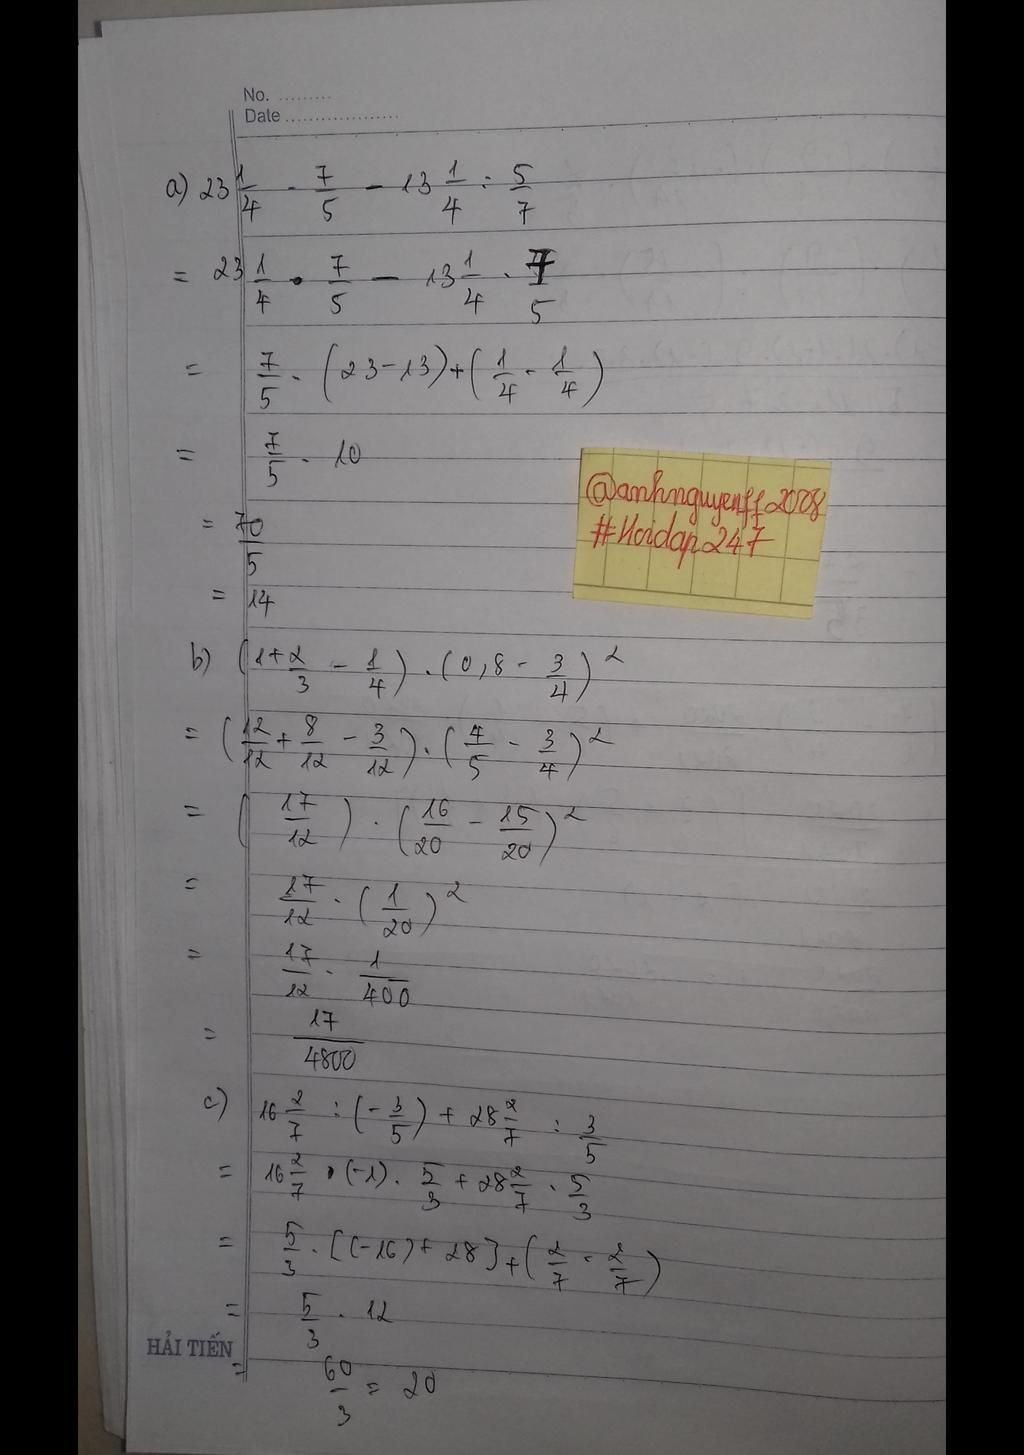 No. .........
Date ...................
a) 23 1/4 . 7/5 - 13 1/4 : 5/7
= 23 1/4 . 7/5 - 13 1/4 . 7/5
= 7/5 . (23-13)+(1/4 - 1/4)
= 7/5 . 10
= 70/5
= 14
@anhnguyenff2008
#Hoidap247
b) (1+2/3 - 1/4) . (0,8 - 3/4)²
= (12/12 + 8/12 - 3/12) . (4/5 - 3/4)²
= (17/12) . (16/20 - 15/20)²
= 17/12 . (1/20)²
= 17/12 . 1/400
= 17/4800
c) 16 2/7 : (-3/5) + 28 2/7 : 3/5
= 16 2/7 . (-1) . 5/3 + 28 2/7 . 5/3
= 5/3 . [(-16) + 28] + (2/7 - 2/7)
= 5/3 . 12
= 60/3 = 20
HẢI TIẾN